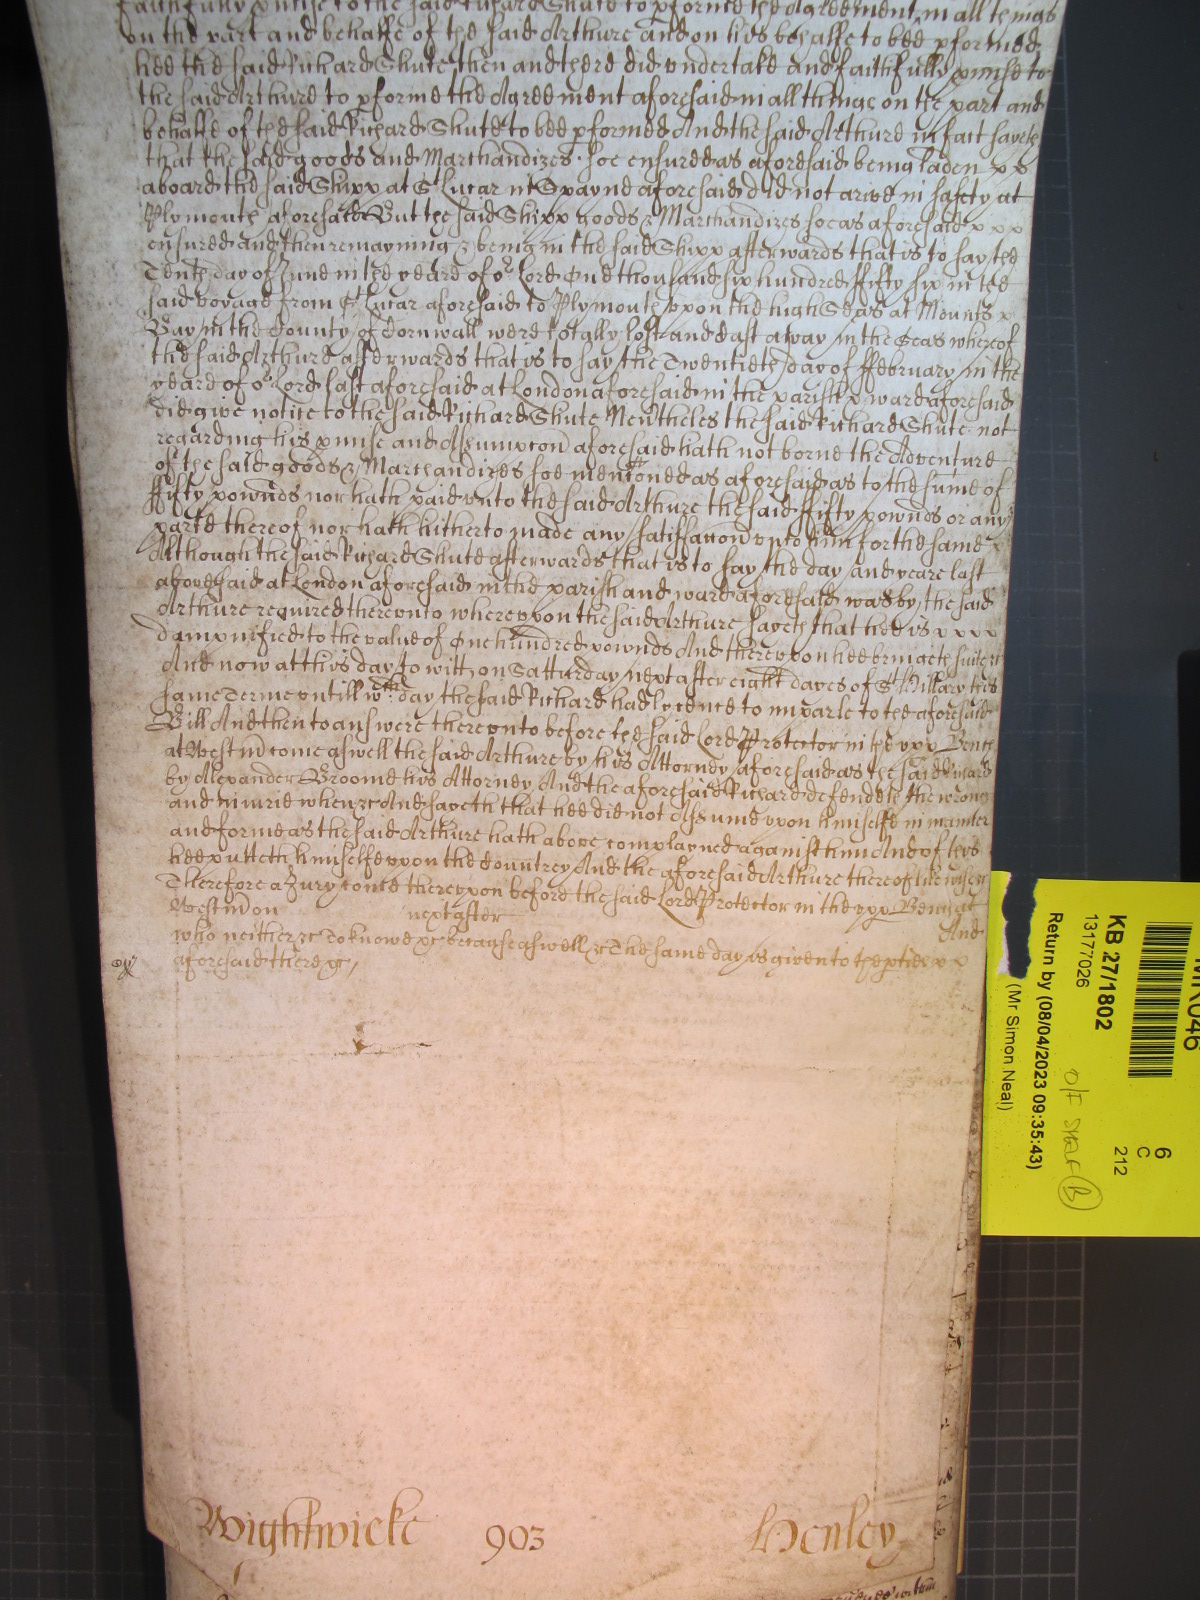 faithfully pmise to the said Richard Shute to pforme the Agreement in all things
on the part and behalfe of the said Arthure and on his behalfe to bee pformed
hee the said Richard Shute then and there did undertake and faithfully pmise to
the said Arthure to pforme the Agreement aforesaid in all things on the part and
behalfe of the said Richard Shute to bee pformed And the said Arthure in fact sayeth
that the said goods and Marchandizes soe ensured as aforesaid being laden x x
aboard the said Shipp at St Lucar in Spayne aforesaid did not arive in safety at
Plymouth aforesaid But the said Shipp goods & Marchandizes soe as aforesaid x x x
ensured and then remayning & being in the said Shipp afterwards that is to say the
Tenth day of June in the yeare of or Lord One thousand six hundred ffifty six in the
said voyage from St Lucar aforesaid to Plymouth vpon the high Seas at Mounts x
Bay in the County of Cornwall were totally lost and cast away in the Seas whereof
the said Arthure afterwards that is to say the Twentieth day of ffebruary in the
yeare of or Lord last aforesaid at London aforesaid in the parish & ward aforesaid
did give notice to the said Richard Shute Nevtheles the said Richard Shute not
regarding his pmise and Assumpcon aforesaid hath not borne the Adventure
of the said goods & Marchandizes soe mentoned as aforesaid as to the sume of
ffifty pownds nor hath paid vnto the said Arthure the said ffifty pownds or any
parte thereof nor hath hitherto made any satisfaccon vnto him for the same x
Although the said Richard Shute afterwards that is to say the day and yeare last
abovesaid at London aforesaid in the parish and ward aforesaid was by the said
Arthure required therevnto wherevpon the said Arthure sayeth that hee is x x x x
dampnified to the value of One hundred pownds And therevpon hee bringeth suite &c
And now at this day to witt on Satturday next after eight dayes of St Hillary this
same Terme vntill wch day the said Richard had lycence to imparle to the aforesaid
Bill And then to answere therevnto before the said Lord Protector in the vpp Bench
at Westm come aswell the said Arthure by his Attorney aforesaid as the said Richard
by Alexander Broome his Attorney And the aforesaid Richard defendeth the wrong
and iniurie when &c And sayeth that hee did not Assume vpon himselfe in manner
and forme as the said Arthure hath above complayned against him And of this
hee putteth himselfe vpon the Countrey And the aforesaid Arthure thereof likewise &c
Therefore a Jury come therevpon before the said Lord Protector in the vpp Bench at
Westm on next after And
who neither &c To knowe &c because aswell &c The same day is given to the pties x x
aforesaid there &c
Wightwicke 903 Henley
KB 27/1802
13177026
Return by (08/04/2023 09:35:43)
(Mr Simon Neal)
6
C
212
O/F SHELF B